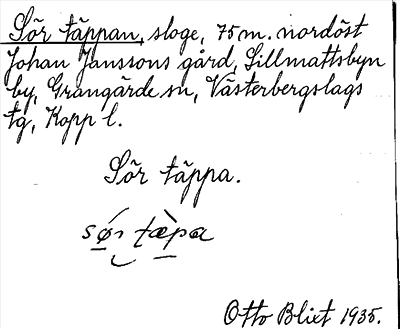 Sör täppan, sloge, 75 m. nordöst
Johan Janssons gård, Sillmattsbyn
by, Grangärde sn, Västerbergslags
tg, Kopp l.
Sör täppa.
Otto Blixt 1935.